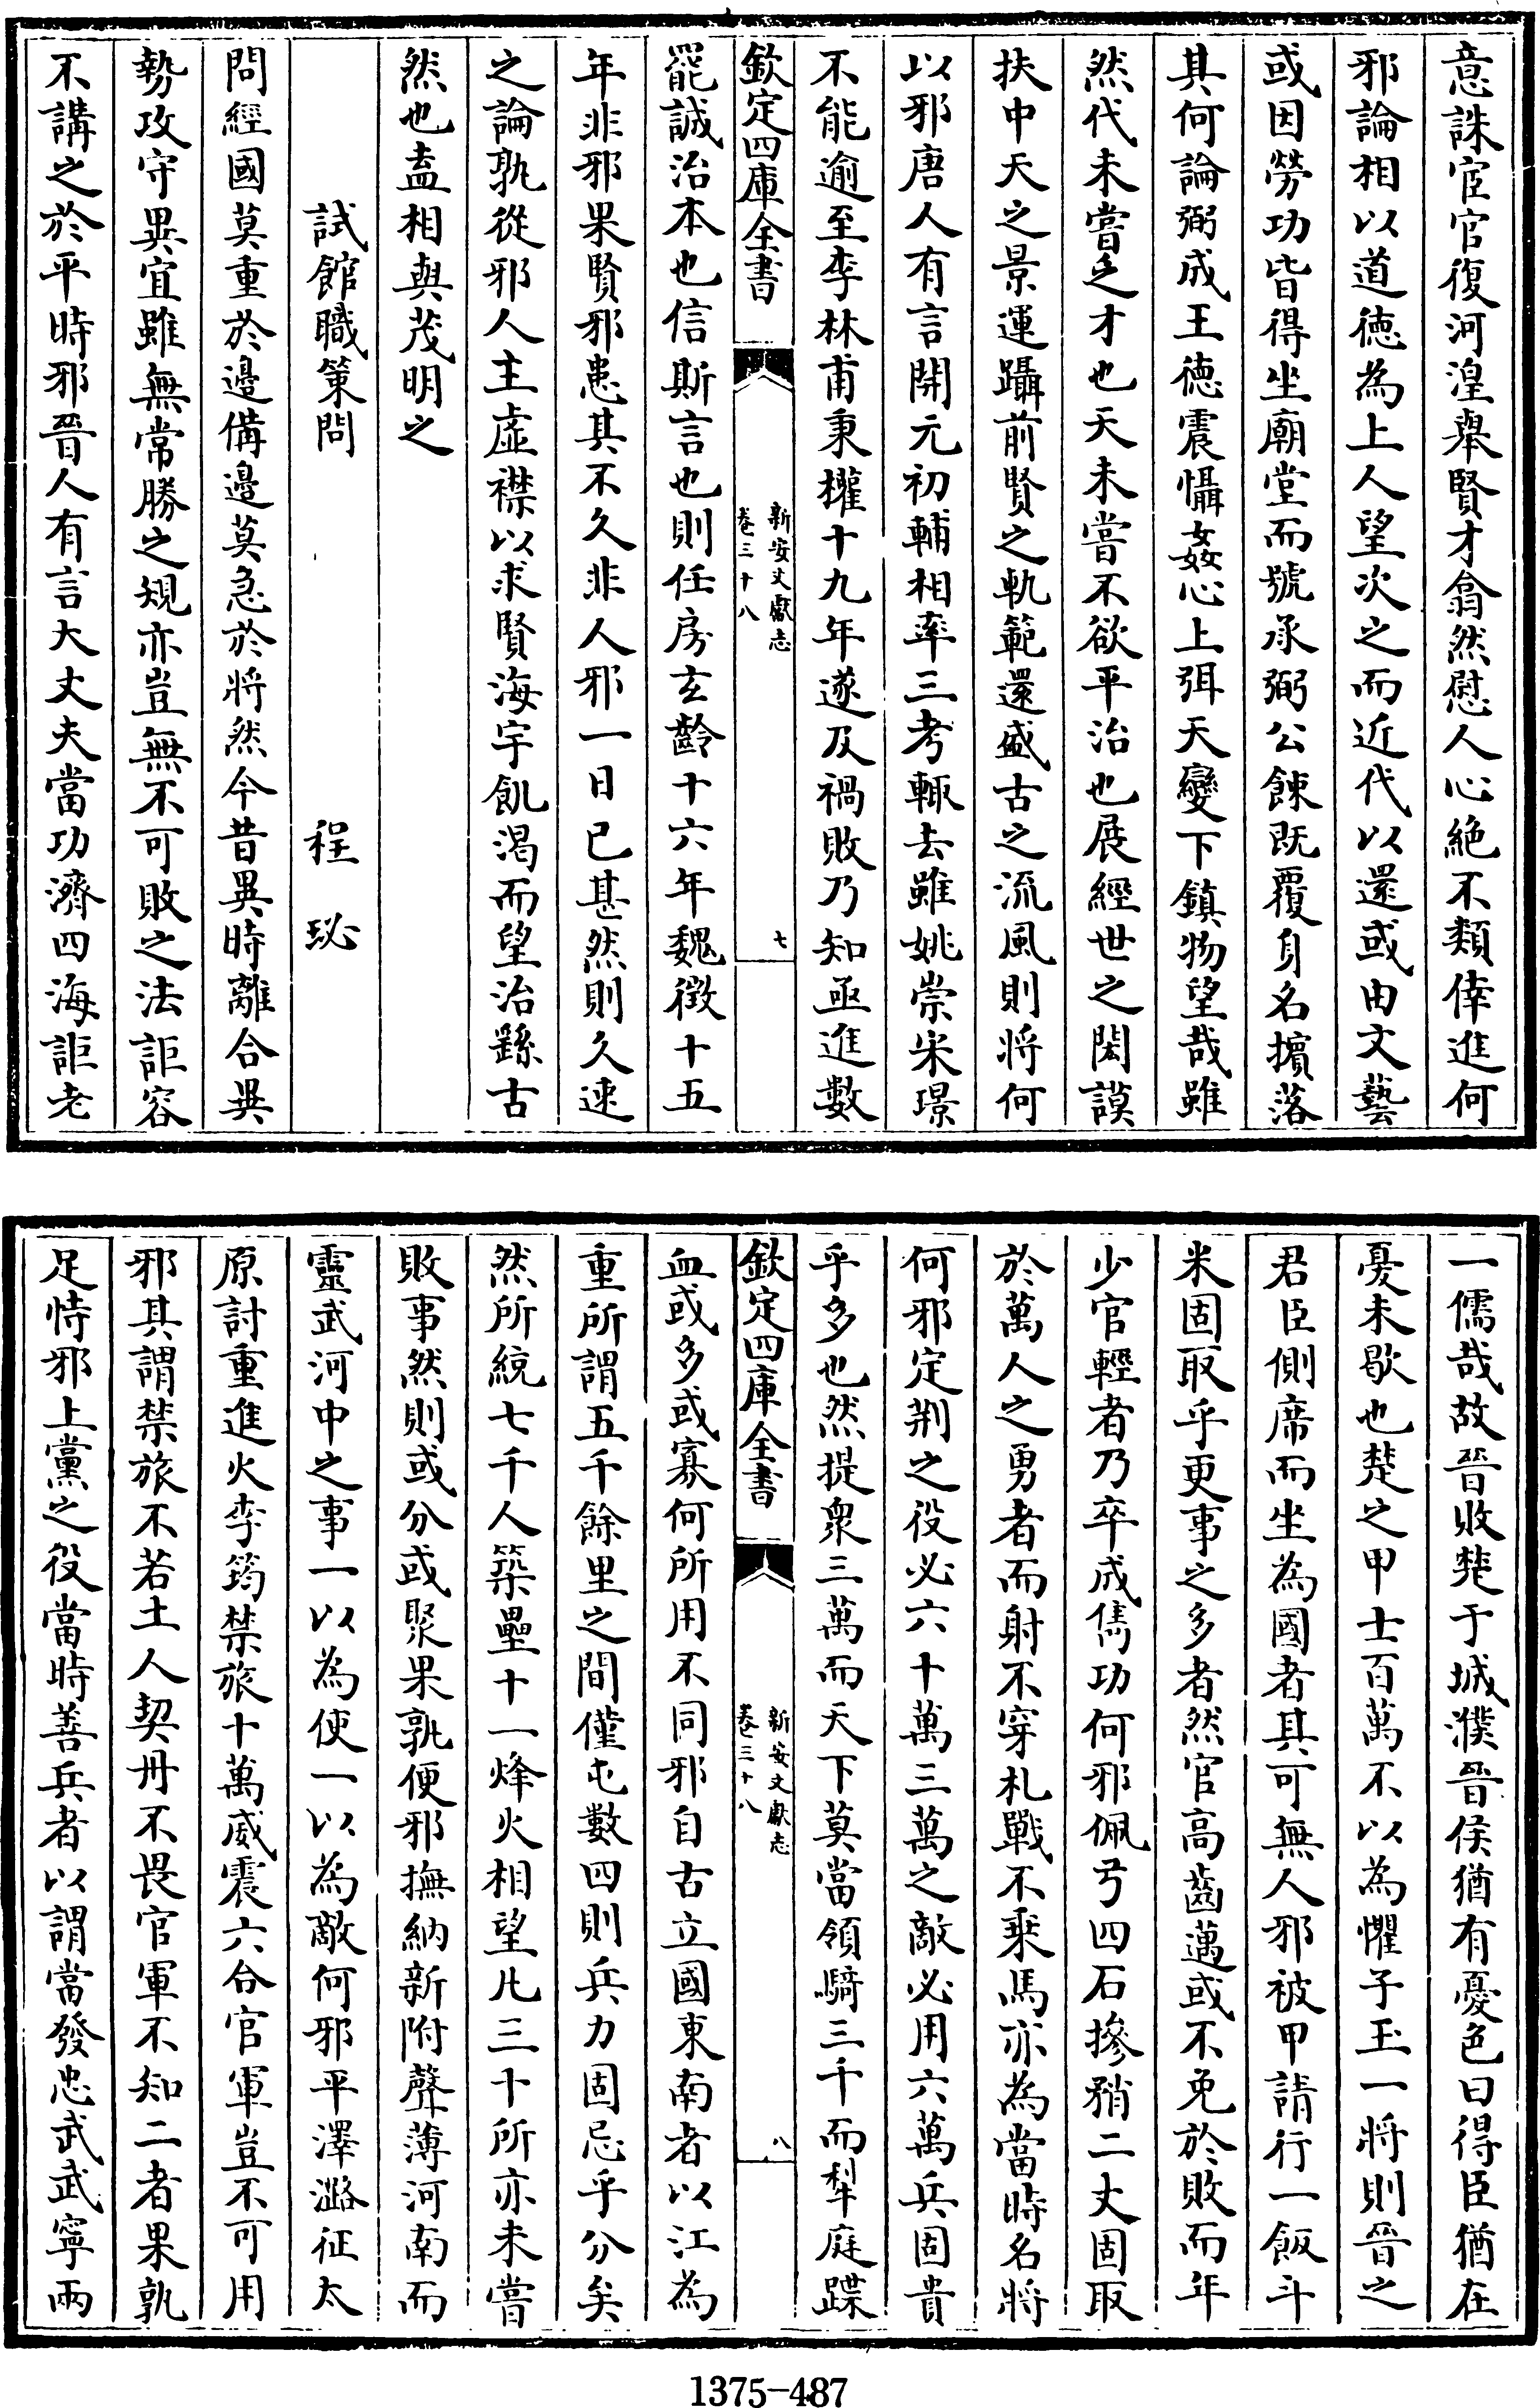 意誅宦官復河湟舉賢才翕然慰人心絶不類倖進何
邪論相以道徳為上人望次之而近代以還或由文藝
或因勞功皆得坐廟堂而號承弼公餗既覆身名擯落
其何論弼成王徳震懾姦心上弭天變下鎮物望哉雖
然代未嘗乏才也天未嘗不欲平治也展經世之閎謨
扶中天之景運躡前賢之軌範還盛古之流風則将何
以邪唐人有言開元初輔相率三考輙去雖姚崇宋璟
不能逾至李林甫秉權十九年遂及禍敗乃知亟進數
欽定四庫全書
新安文獻志
卷三十八
七
罷誠治本也信斯言也則任房玄齡十六年魏徵十五
年非邪果賢邪患其不久非人邪一日已甚然則久速
之論孰從邪人主虛襟以求賢海宇飢渴而望治繇古
然也盍相與茂明之
試館職策問
程珌
問經國莫重於邊備邊莫急於将然今昔異時離合異
勢攻守異宜雖無常勝之規亦豈無不可敗之法詎容
不講之於平時邪晉人有言大丈夫當功濟四海詎老
一儒哉故晉敗楚于城濮晉侯猶有憂色曰得臣猶在
憂未歇也楚之甲士百萬不以為懼子玉一将則晉之
君臣側席而坐為國者其可無人邪被甲請行一飯斗
米固取乎更事之多者然官高齒邁或不免於敗而年
少官輕者乃卒成雋功何邪佩弓四石摻矟二丈固取
於萬人之勇者而射不穿札戰不乘馬亦為當時名将
何邪定荆之役必六十萬三萬之敵必用六萬兵固貴
乎多也然提衆三萬而天下莫當領騎三千而犁庭蹀
欽定四庫全書
新安文獻志
卷三十八
八
血或多或寡何所用不同邪自古立國東南者以江為
重所謂五千餘里之間僅屯數四則兵力固忌乎分矣
然所統七千人築壘十一烽火相望凡三十所亦未嘗
敗事然則或分或聚果孰便邪撫納新附聲薄河南而
靈武河中之事一以為使一以為敵何邪平澤潞征太
原討重進火李筠禁旅十萬威震六合官軍豈不可用
邪其謂禁旅不若土人契丹不畏官軍不知二者果孰
足恃邪上黨之役當時善兵者以謂當發忠武武寧兩
1375-487